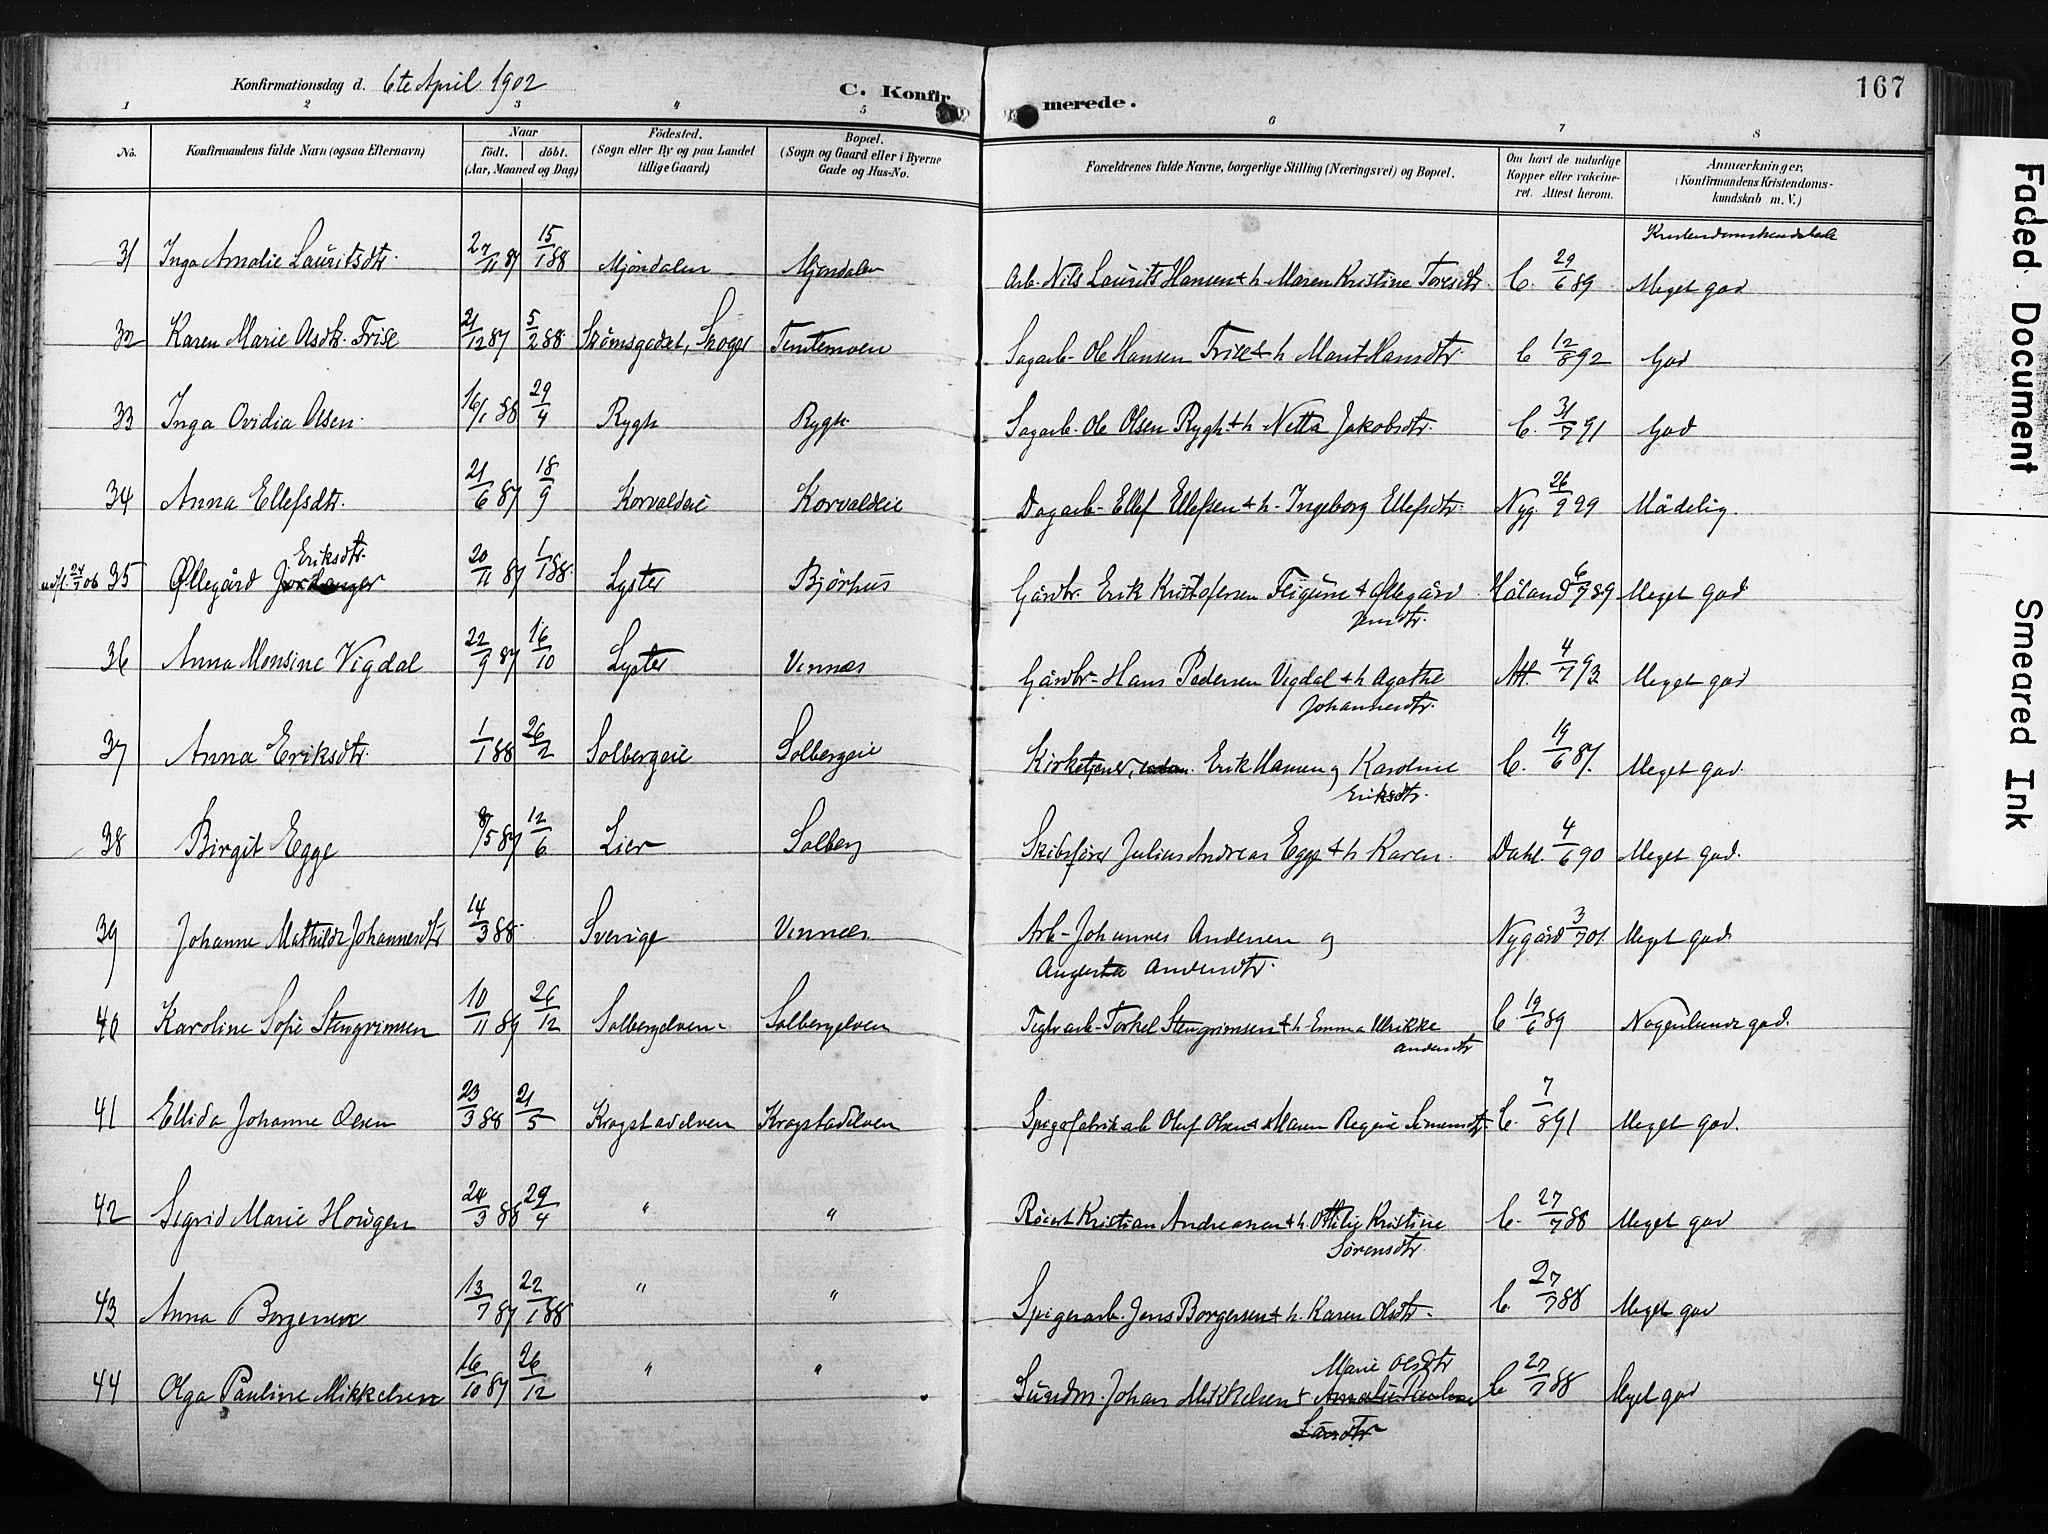 167
Konfirmationsdag d. 6te April 1902
C. Konfirmerede.
1 2 3 " 5 6 7 8
No. Konfirmandens fulde Navn (ogsaa Efternavn) Naar födt. döbt. (Aar, Maaned og Dag) Födested. (Sogn eller By og paa Landet tillige Gaard) Bopæl. (Sogn og Gaard eller i Byerne Gade og Hus-No. Forældrenes fulde Navne, borgerlige Stilling (Næringsvei) og Bopæl. Om havt de naturlige Kopper eller vakcineret. Attest herom. Anmærkninger, (Konfirmandens Kristendomskundskab m. V.)
Kristendomskundskab
31 Inga Amalie Lauritsdtr. 27/11 87 15/1 88 Mjöndalen Mjöndalen Arb. Nils Laurits Hansen & h. Maren Kristine Toresdtr. C. 29/6 89 Meget god
32 Karen Marie Olsdtr. Frise 21/12 87 5/2 88 Skoger Sagarb. Ole Hansen Frise & h. Marit Hansdtr. C 12/8 92 God
33 Inga Ovidia Olsen. 16/1 88 29/4 Rygh Rygh. Sagarb. Ole Olsen Rygh & h. Netta Jakobsdtr. C. 31/7 91 God
34 Anna Ellefsdtr. 21/6 87 18/9 Korvaldeie Korvaldeie Dagarb. Ellef Ellefsen & h. Ingeborg Ellefsdtr. Nyg. 26/9 99 Mådelig.
udfl. 24/7 06 35 Øllegård Eriksdtr. 20/11 87 1/1 88. Lyster Bjørhus Gårdbr. Erik Kristofersen Feigum & Øllegård Jensdtr. Håland 6/7 89 Meget god
36 Anna Monsine Vigdal 22/9 87 16/10 Lyster Vinnes Gårdbr. Hans Pedersen Vigdal & h. Agathe Johannesdtr. Att. 4/7 93 Meget god
37 Anna Eriksdtr. 1/1 88 26/2 Solbergeie Solbergeie Kirketjener, Erik Hansen og Karoline Eriksdtr. C. 19/6 87. Meget god.
38 Birgit Egge 8/5 87 12/6 Lier Solberg Skibsfører Julius Andreas Egge & h. Karen. Dahl. 4/6 90 Meget god.
39 Johanne Mathilde Johannesdtr 14/3 88. Sverige Vinnes Arb. Johannes Andersen og Augusta Andersdtr. Nygård 3/7 01. Meget god.
40 Karoline Sofie Stengrimsen 10/11 87 26/12 Solbergelven Solbergelven Teglv.arb. Torkel Stengrimsen & h. Emma Ulrikke Andersdtr C. 19/6 89 Nogenlunde god.
41 Ellida Johanne Olsen 23/3 88 21/5 Krogstadelven Krogstadelven Spigerfabrikarb. Oluf Olsen & Maren Regine Simensdtr. C. 7/8 91 Meget god.
42 Sigrid Marie Hougen 24/3 88 29/4 " " Kristian Andreassen & h. Ottilie Kristine Sørensdtr. C. 27/7 88 Meget god
43 Anna Borgersen 13/7 87 22/1 88 " " Spigerarb. Jens Borgersen & h. Karen Olsdtr. C. 27/7 88 Meget god
44 Olga Pauline Mikkelsen 16/10 87 26/12 " " Johan Mikkelsen & Marie Olsdtr Amalie Pauline Larsdtr C 27/7 88 Meget god
Faded Document
Smeared Ink